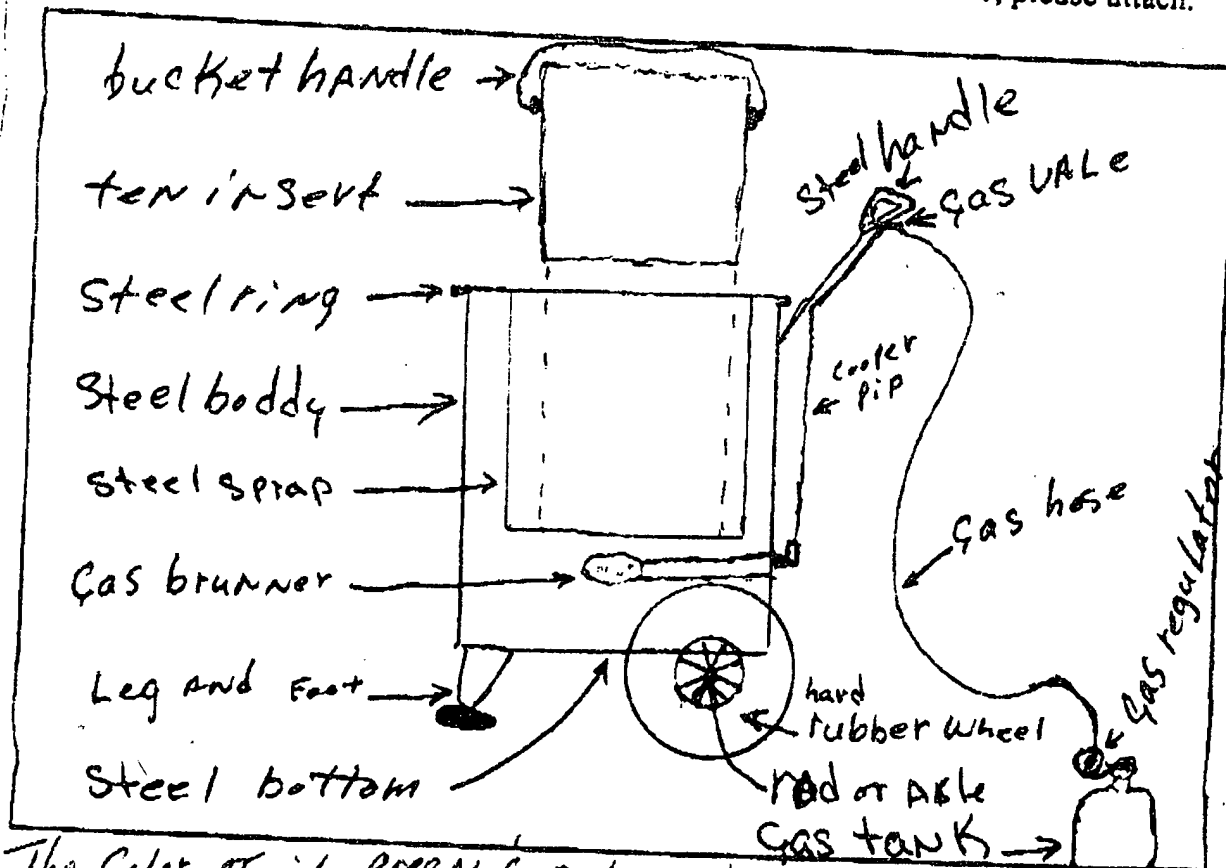 please attach.
bucket handle
ten insert
steel ring
Steel boddy
steel sprap
Gas brunner
Leg and Foot
Steel bottom
Steel handle
Gas vale
cooper
pip
Gas hose
Gas regulator
hard
rubber wheel
rod or Able
Gas tank
The Color of it